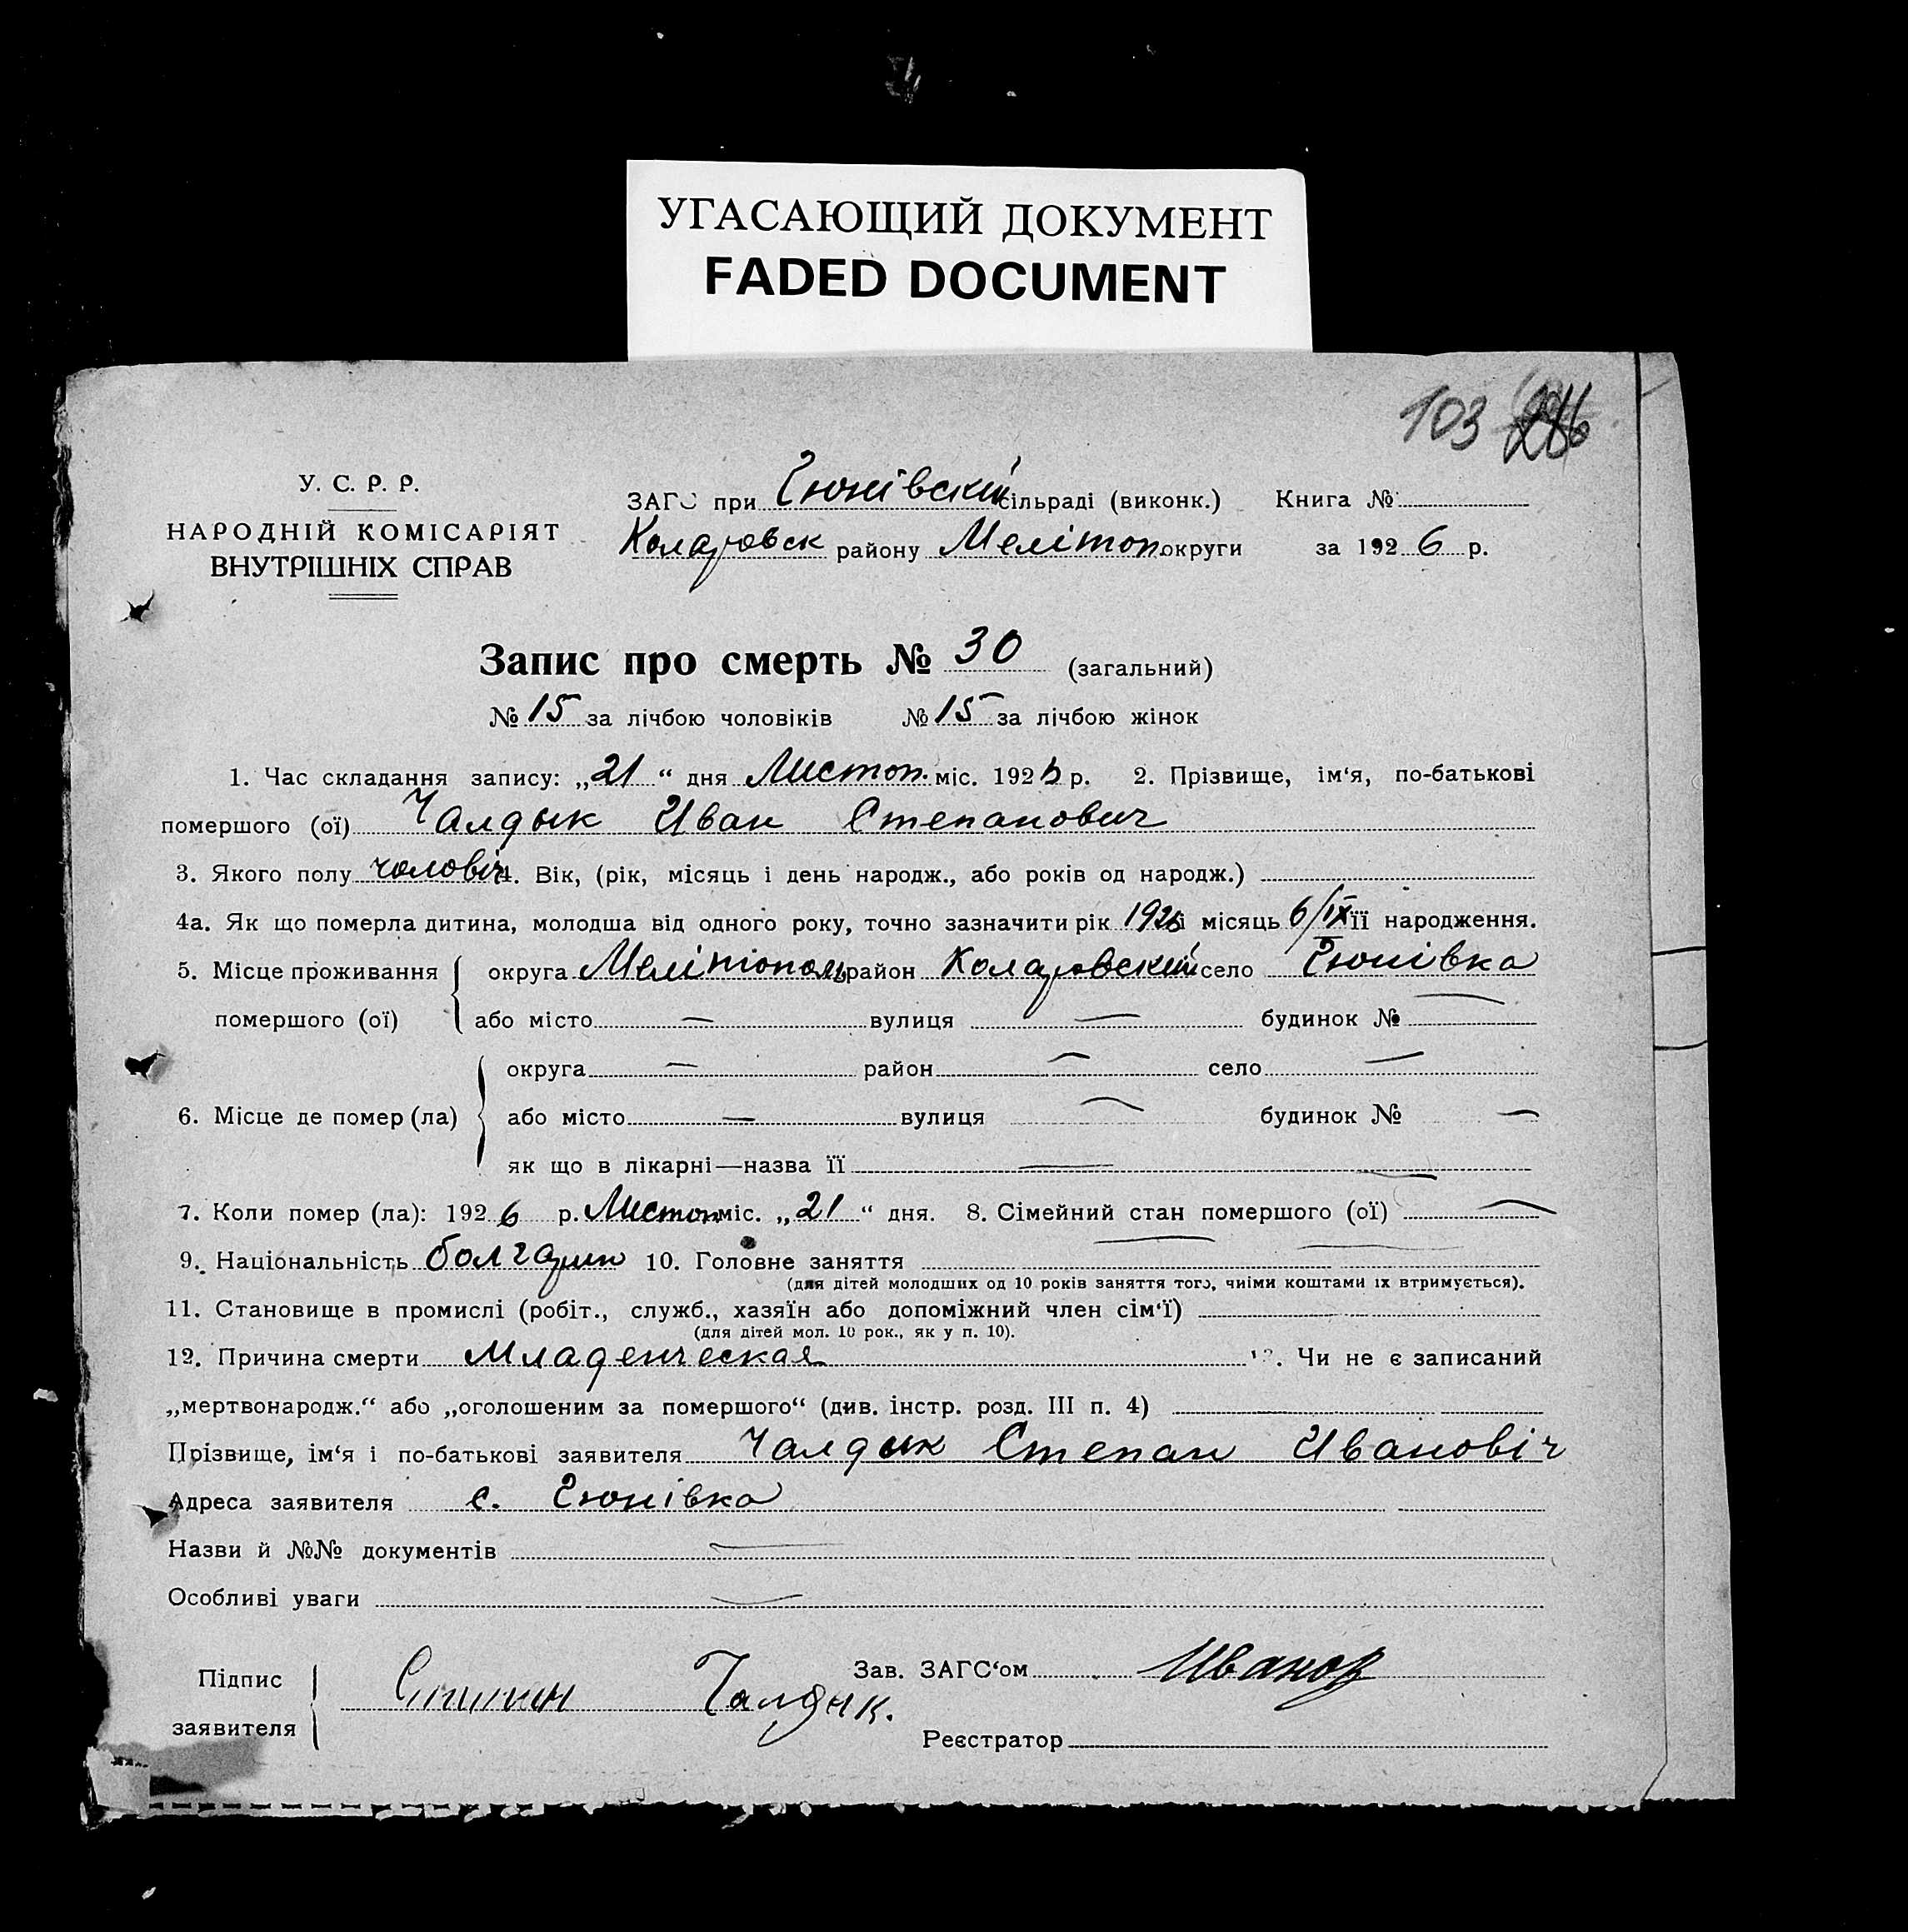 УГАСАЮЩИЙ ДОКУМЕНТ
FADED DOCUMENT
103
У. С. Р. Р.
НАРОДНІЙ КОМІСАРІЯТ
ВНУТРІШНІХ СПРАВ
ЗАГС при Гюнівській сільраді (виконк.) Книга №
Коларовск району Мелітоп округи за 1926 р.
Запис про смерть № 30 (загальний)
№ 15 за лічбою чоловіків № 15 за лічбою жінок
1. Час складання запису: „21“ дня Листоп. міс. 1926 р. 2. Прізвище, ім‘я, по-батькові
помершого (ої) Чалдык Иван Степанович
3. Якого полу чоловіч 4. Вік, (рік, місяць і день народж., або років од народж.)
4а. Як що померла дитина, молодша від одного року, точно зазначити рік 1926 і місяць 6/IX її народження.
5. Місце проживання округа Меліпополь район Коларовский село Гюнівка
помершого (ої) або місто — вулиця — будинок № —
округа — район — село —
6. Місце де помер (ла) або місто — вулиця — будинок № —
як що в лікарні—назва її —
7. Коли помер (ла): 1926 р. Листоп міс. „21“ дня. 8. Сімейний стан помершого (ої) —
9. Національність болгарин 10. Головне заняття —
(для дітей молодших од 10 років заняття того, чиїми коштами їх втримується).
11. Становище в промислі (робіт., служб., хазяїн або допоміжний член сім‘ї)
(для дітей мол. 10 рок., як у п. 10).
12. Причина смерти Младенческая 13. Чи не є записаний
„мертвонародж.“ або „оголошеним за помершого“ (див. інстр. розд. III п. 4)
Прізвище, ім‘я і по-батькові заявителя Чалдык Степан Ивановіч
Адреса заявителя с. Гюнівка
Назви й №№ документів —
Особливі уваги —
Підпис
заявителя Степан Чалдик.
Зав. ЗАГС‘ом Иванов
Реєстратор